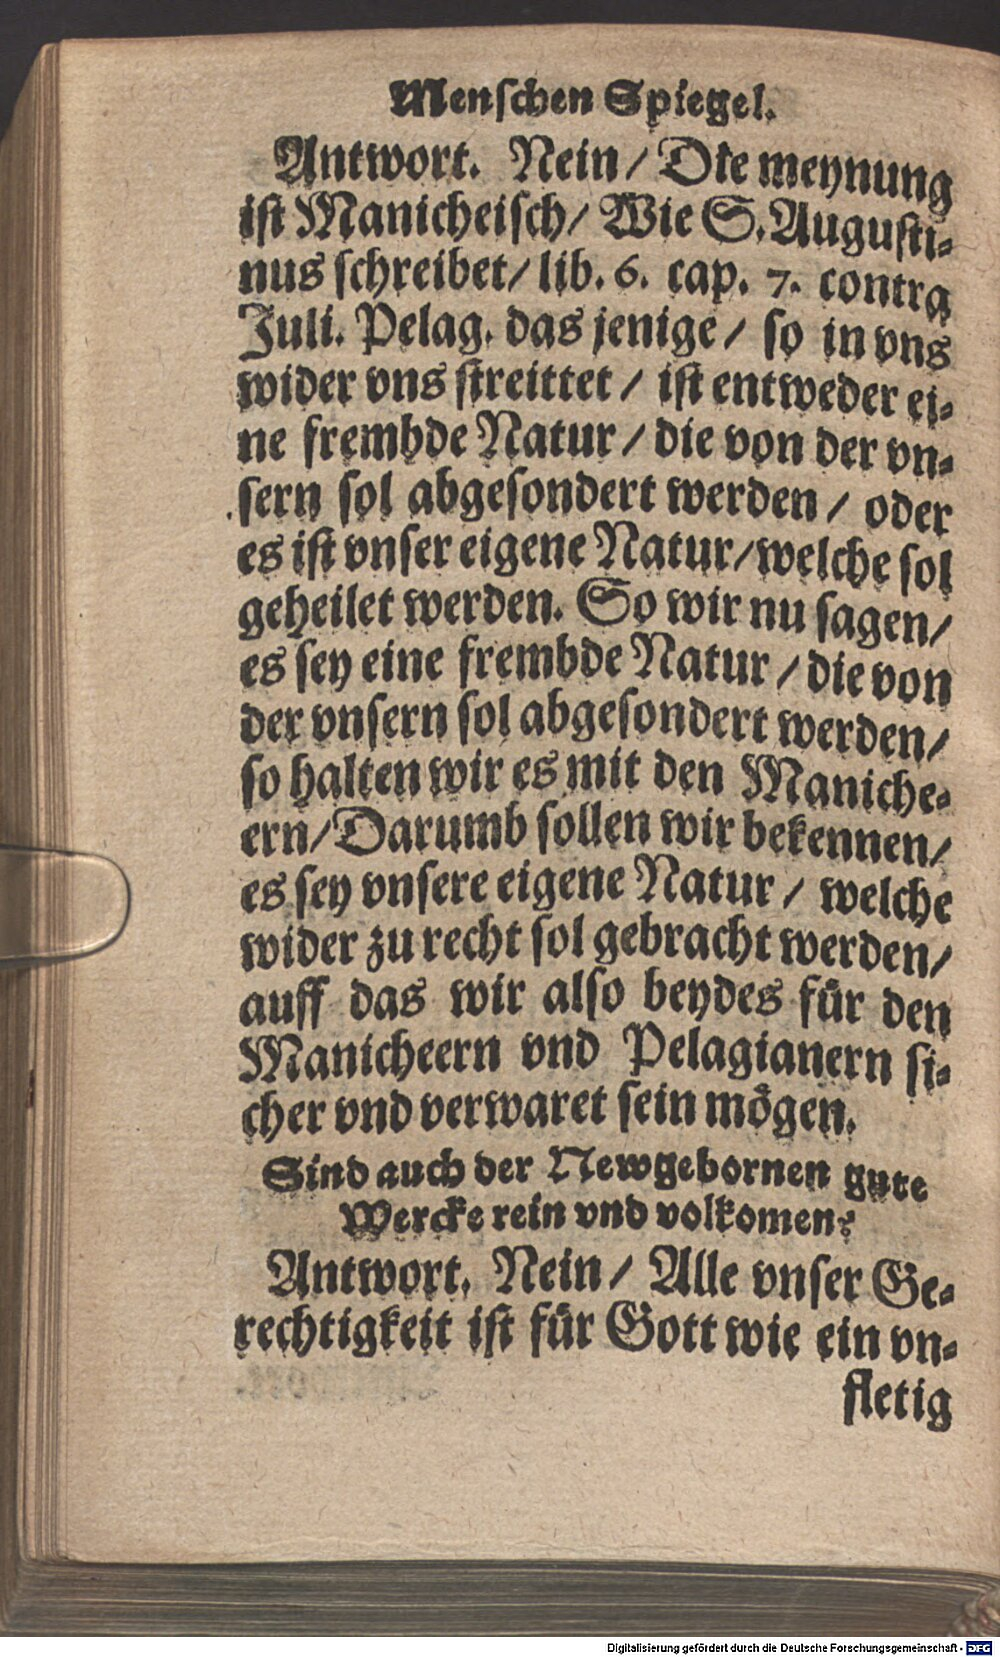 Menſchen Spiegel.
Antwort. Nein/ Die meynung
iſt Manicheiſch/ Wie S. Auguſti⸗
nus ſchreibet/ lib. 6. cap. 7. contra
Juli. Pelag. das jenige/ ſo in vns
wider vns ſtreittet/ iſt entweder ei⸗
ne frembde Natur/ die von der vn⸗
ſern ſol abgeſondert werden/ oder
es iſt vnſer eigene Natur/welche ſol
geheilet werden. So wir nu ſagen/
es ſey eine frembde Natur/ die von
der vnſern ſol abgeſondert werden/
ſo halten wir es mit den Maniche⸗
ern/ Darumb ſollen wir bekennen/
es ſey vnſere eigene Natur/ welche
wider zu recht ſol gebracht werden/
auff das wir alſo beydes für den
Manicheern vnd Pelagianern ſi⸗
cher vnd verwaret ſein mögen.
Sind auch der Newgebornen gute
Wercke rein vnd volkomen?
Antwort. Nein/ Alle vnſer Ge⸗
rechtigkeit iſt für Gott wie ein vn⸗
fletig
Digitalisierung gefördert durch die Deutsche Forschungsgemeinschaft - DFG